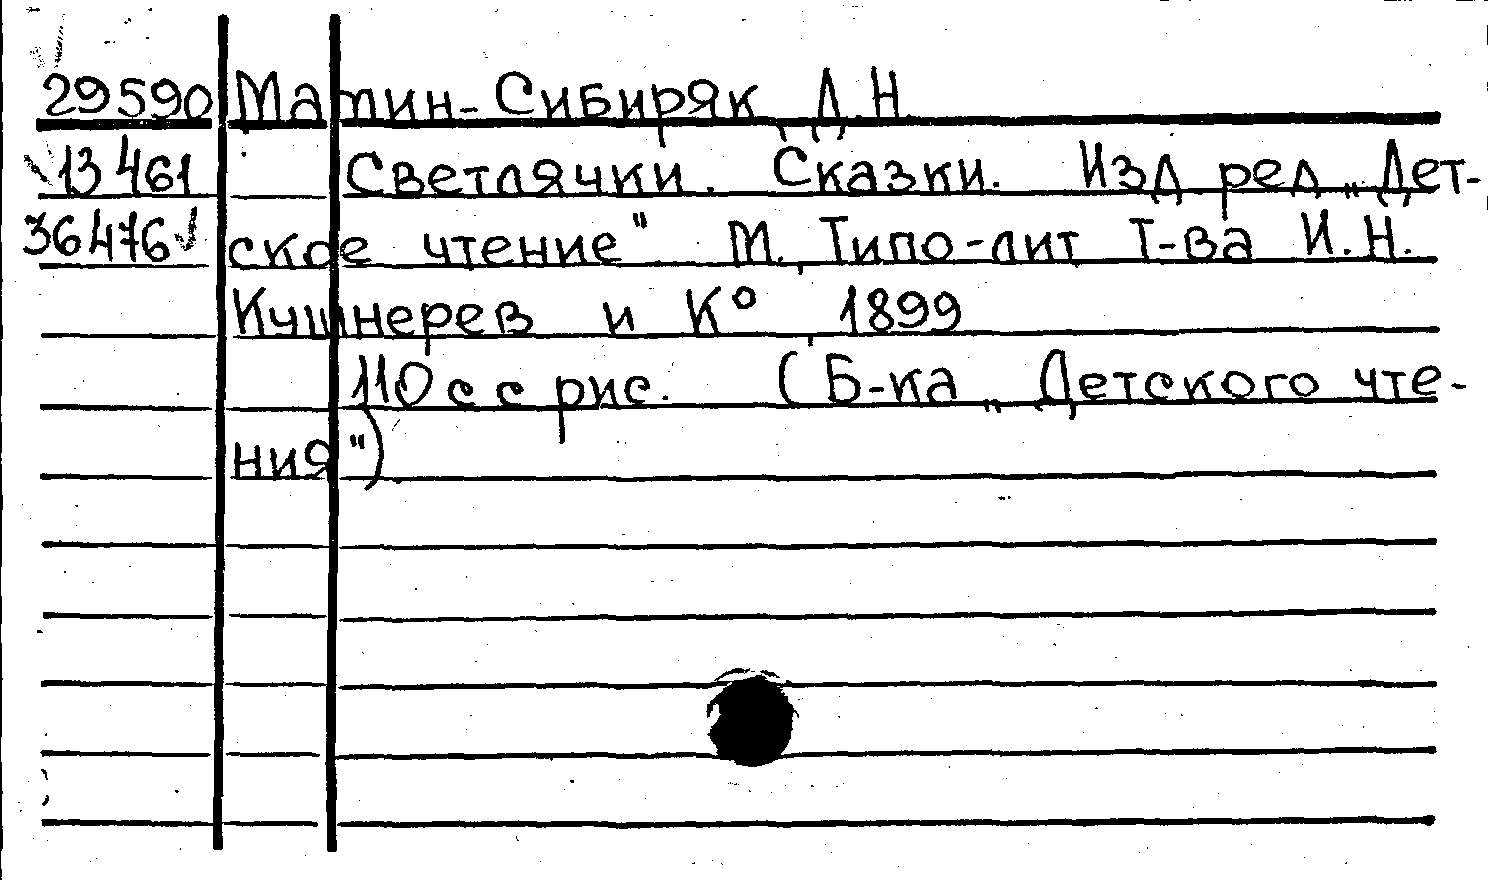 29590 Мамин-Сибиряк, Д.Н.
13461 Светлячки. Сказки. Изд. ред. „Дет-
36476 ское чтение". М., Типо-лит. Т-ва И.Н.
Кушнерев и К°, 1899
110 с с рис. (Б-ка „Детского чте-
ния")